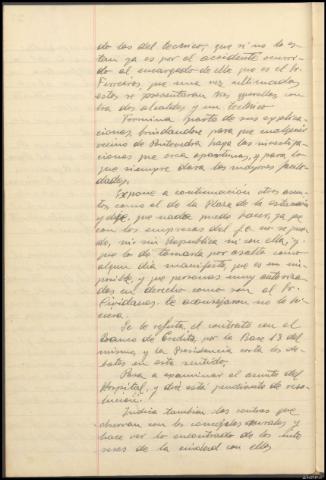 do los del tecnico, que si no lo es-
tan ya es por el accidente ocurri-
do al encargado de ello que es el Sr.
Firreiros, que una vez ultimados
estos se presentaran tres querellas con-
tra dos alcaldes y un tecnico
Termina parte de sus explica-
ciones, brindandose para que cualquier
vecino de Pontevedra haga las investiga-
ciones que crea oportunas, y para lo
que siempre dara las mayores facili-
dades.
Expone a continuación otros asun-
tos como el de la Plaza de la Estación
y dije que nada puede hacer, ya que
con las empresas del f.c. no se pue-
de, ni sin Republica ni con ella, y
que lo de tomarla por asalto como
algun dia manifesto, que es un im-
posible, y que personas muy autoriza-
das en derecho como son el Sr.
Cividanes le aconsejaron no lo hi-
ciera.
Se le refuta el contrato con el
Banco de Credito, por la Base 13 del
mismo, y la Presidencia corta los de-
bates en este sentido.
Pasa a examinar el asunto del
Hospital, y dice está pendiente de reso-
lucion.
Indica tambien las rentas que
observan con los concejales rurales y
hace ver lo encontrado de los inte-
reses de la ciudad con ellos